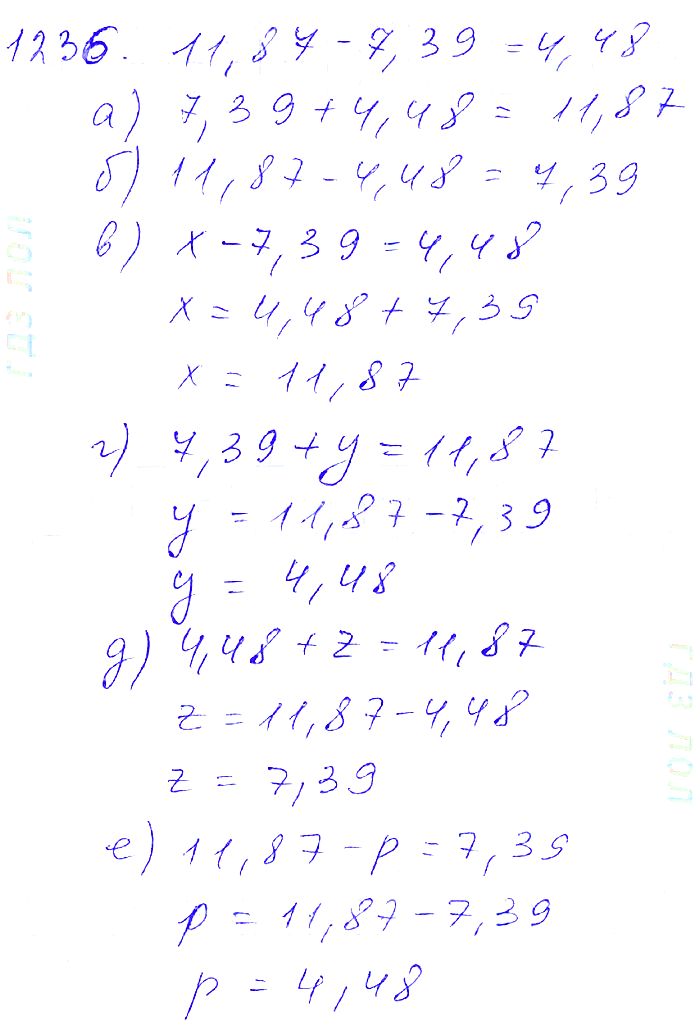 1236. 11,87 - 7,39 = 4,48
а) 7,39 + 4,48 = 11,87
б) 11,87 - 4,48 = 7,39
в) x - 7,39 = 4,48
x = 4,48 + 7,39
x = 11,87
г) 7,39 + y = 11,87
y = 11,87 - 7,39
y = 4,48
д) 4,48 + z = 11,87
z = 11,87 - 4,48
z = 7,39
е) 11,87 - p = 7,39
p = 11,87 - 7,39
p = 4,48
ГДЗ ЛОЛ
ГДЗ ЛОЛ